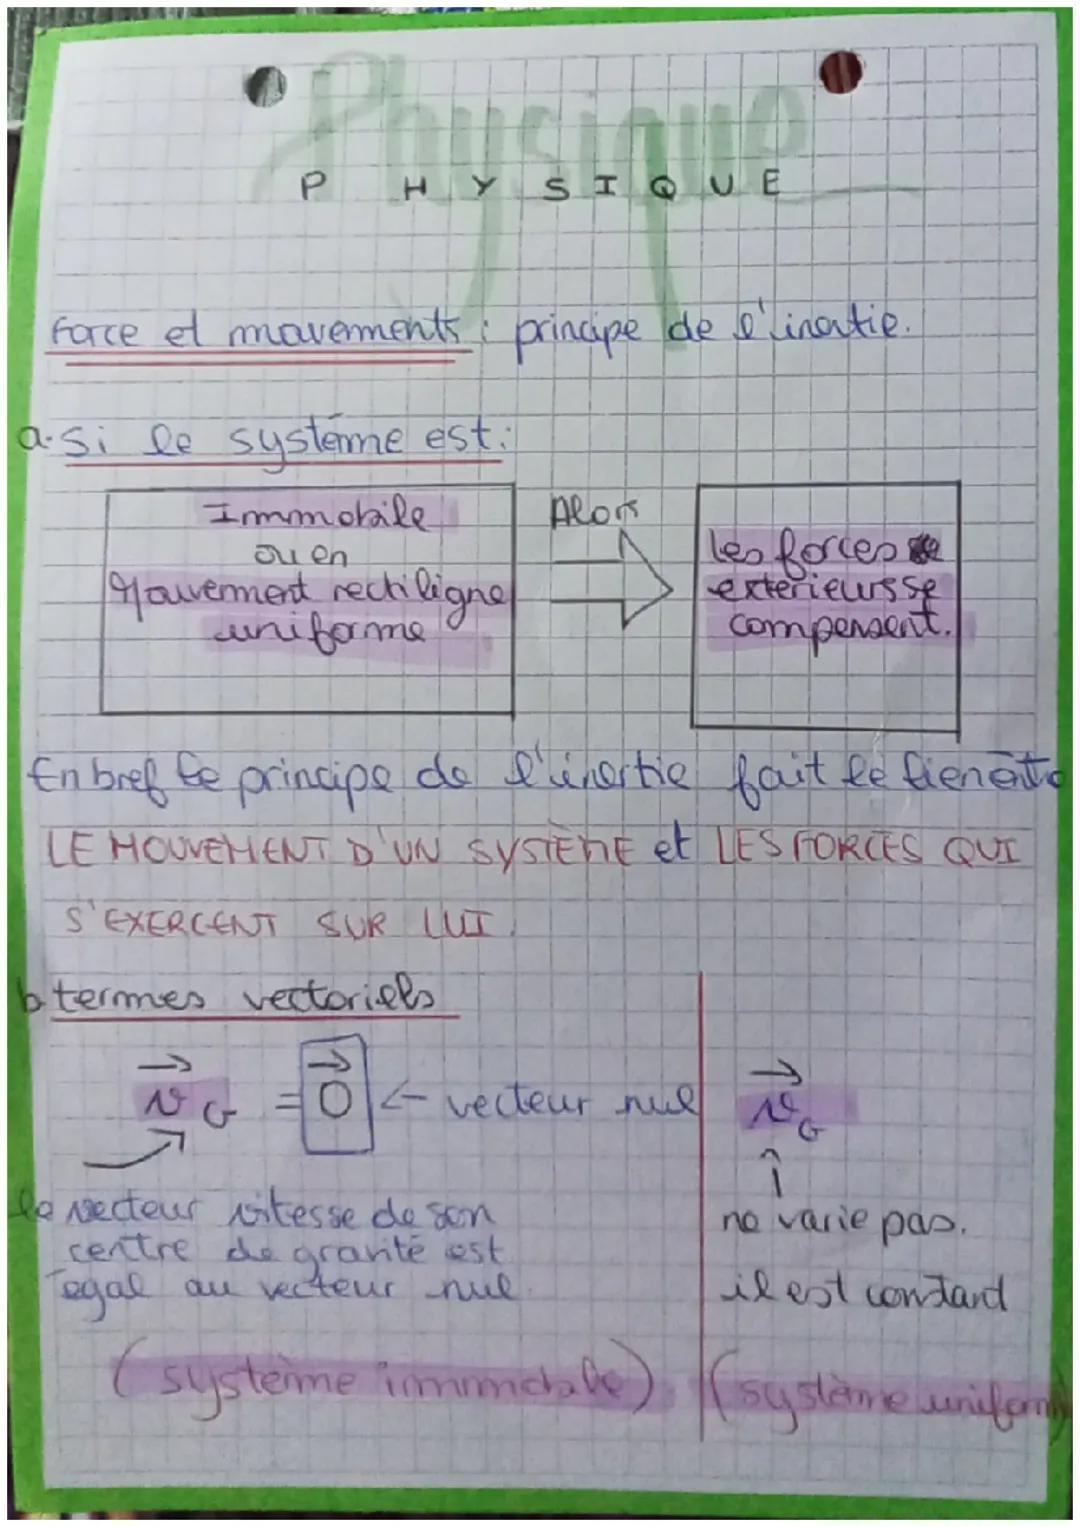 Physique
P H Y S I Q U E
Force et mouvements : principe de l'inertie.
a. Si le système est :
Immobile
ou en
Mouvement rectiligne
uniforme
Alors
les forces
exterieurs se
compensent.
En bref le principe de l'inertie fait le lien entre
LE MOUVEMENT D'UN SYSTÈME et LES FORCES QUI
S'EXERCENT SUR LUI.
b termes vectoriels
v⃗ G = 0⃗ ← vecteur nul
v⃗ G
le vecteur vitesse de son
centre de gravité est
égal au vecteur nul.
(système immobile)
ne varie pas.
il est constant
(système uniforme)